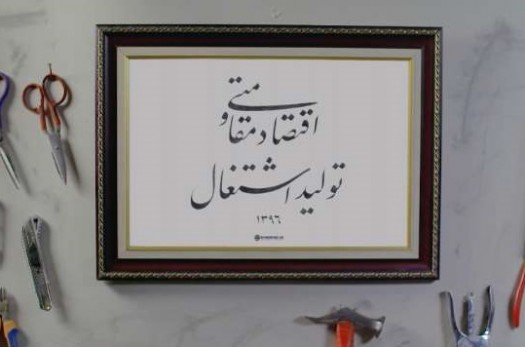 اقتصاد مقاومتی
تولید اشتغال
۱۳۹۶